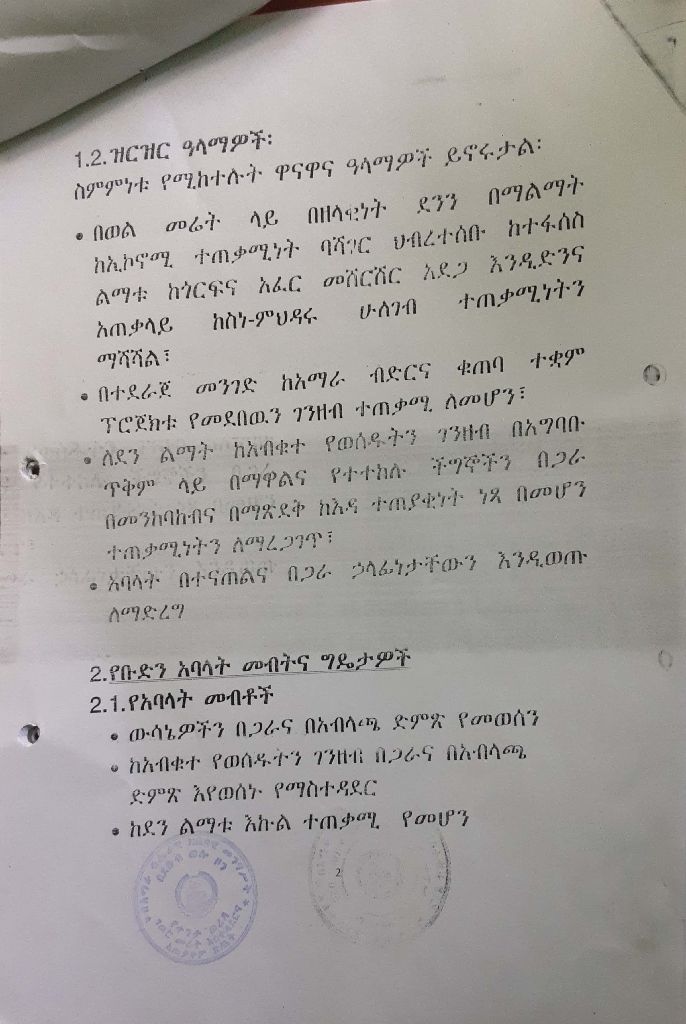 1.2.ዝርዝር ዓላማዎች፡
ስምምነቱ የሚከተሉት ዋናዋና ዓላማዎች ይኖሩታል፡
• በወል መሬት ላይ በዘላቂነት ደንን በማልማት
ከኢኮኖሚ ተጠቃሚነት ባሻገር ህብረተሰቡ ከተፋሰስ
ልማቱ ከጎርፍና አፈር መሸርሸር አደጋ እንዲድንና
አጠቃላይ ከስነ-ምህዳሩ ሁለገብ ተጠቃሚነትን
ማሻሻል፣
• በተደራጀ መንገድ ከአማራ ብድርና ቁጠባ ተቋም
ፕሮጀክቱ የመደበዉን ገንዘብ ተጠቃሚ ለመሆን፣
• ለደን ልማት ከአብቁተ የወሰዱትን ገንዘብ በአግባቡ
ጥቅም ላይ በማዋልና የተተከሉ ችግኞችን በጋራ
በመንከባከብና በማጽደቅ ከእዳ ተጠያቂነት ነጻ በመሆን
ተጠቃሚነትን ለማረጋገጥ፣
• አባላት በተናጠልና በጋራ ኃላፊነታቸውን እንዲወጡ
ለማድረግ
2.የቡድን አባላት መብትና ግዴታዎች
2.1.የአባላት መብቶች
• ውሳኔዎችን በጋራና በአብላጫ ድምጽ የመወሰን
• ከአብቁተ የወሰዱትን ገንዘብ በጋራና በአብላጫ
ድምጽ እየወሰኑ የማስተዳደር
• ከደን ልማቱ እኩል ተጠቃሚ የመሆን
2